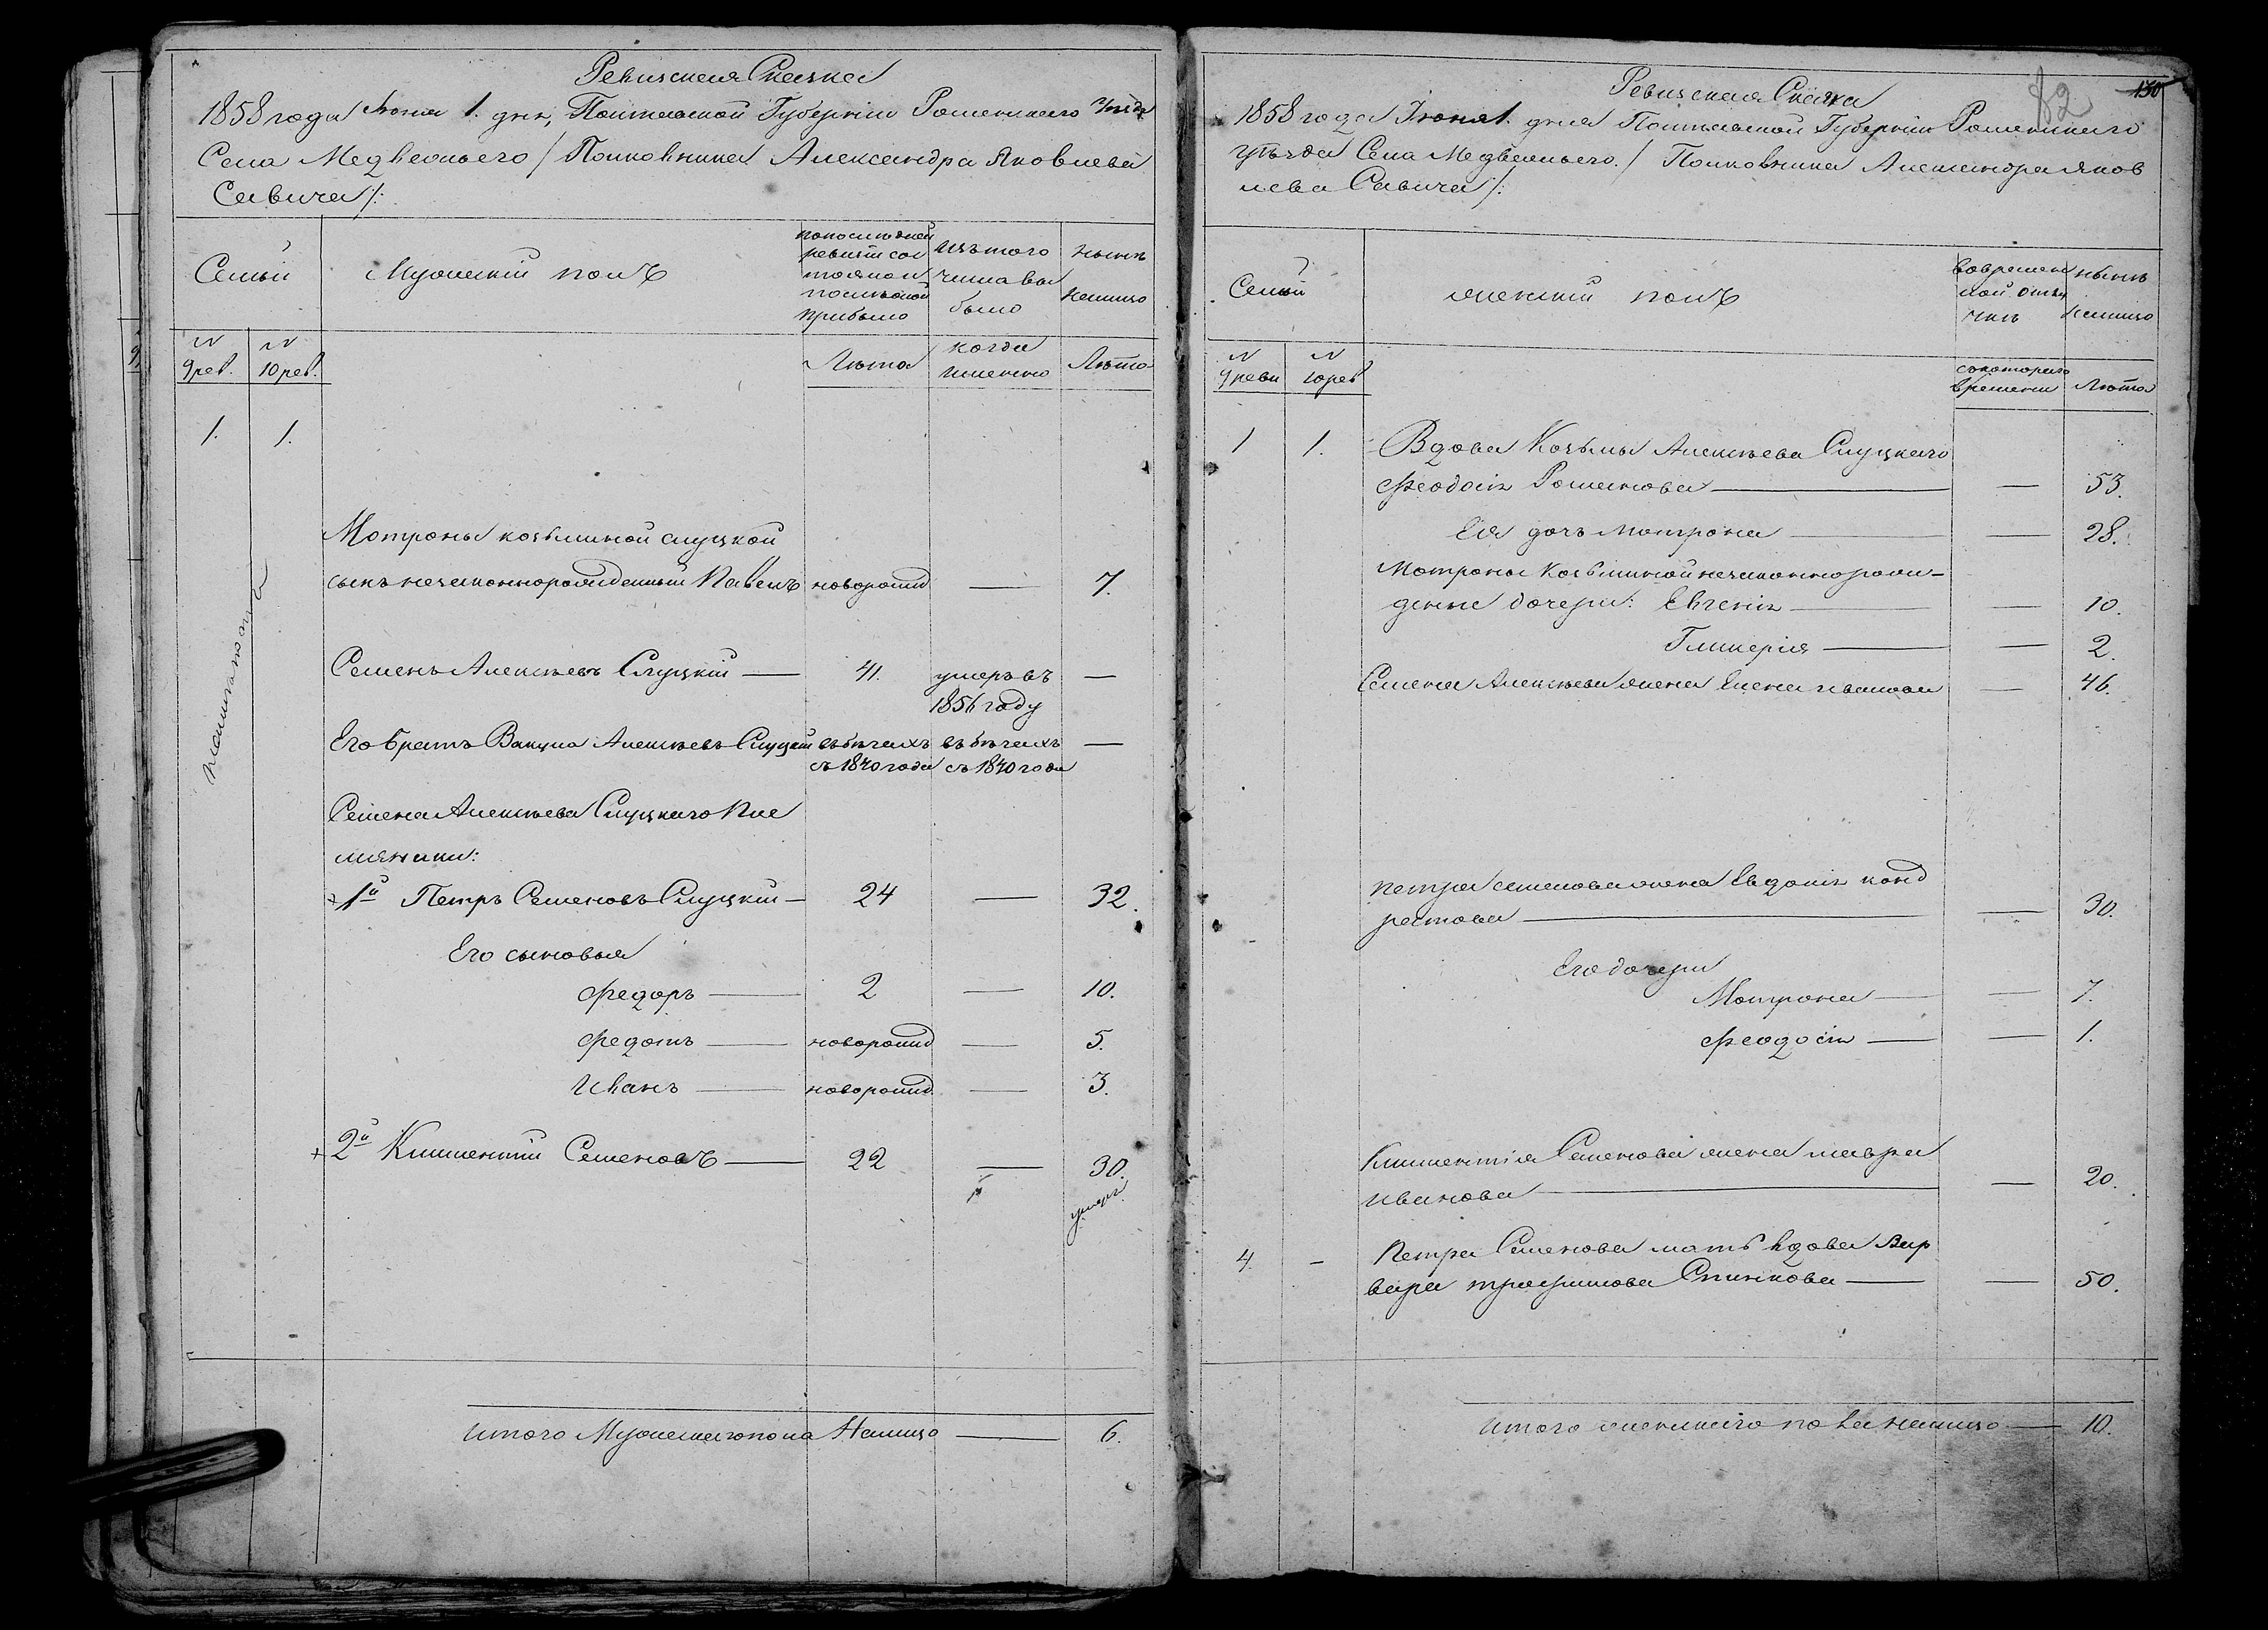 Ревизская Сказка
1858 года Июня 1. дня, Полтавской Губерніи Роменского Уезда
Села Медвежьего / Полковника Александра Яковлева
Савича /:
Семьи
Мужескій полъ
по последней ревизіи состояло и после оной прибыло
Изъ того числа выбыло
ныне налицо
№ 9 рев.
№ 10 рев.
Лета
когда именно
Лета
1. 1.
Мотроны козьминой слуцкой
сынъ незаконнорожденный Павелъ новорожд — 7.
Семенъ Алексѣевъ Слуцкій — 41. умеръ въ —
1856 году
Его братъ Вакула Алексѣевъ Слуцкій въ бѣгахъ въ бѣгахъ —
съ 1840 года съ 1840 года
Семена Алексѣева Слуцкаго Пле
мянники:
1й Петръ Семеновъ Слуцкій — 24 — 32.
Его сыновья
Федоръ — 2 — 10.
Федотъ — новорожд — 5.
Иванъ — новорожд. — 3.
+ 2й Климентій Семеновъ — 22 — 30.
умеръ
Итого Мужеска пола Налицо — 6.
82
150
Ревизская Сказка
1858 года Июня 1. дня Полтавской Губерніи Роменского
уѣзда Села Медвежьего. / Полковника Александра Яков
лева Савича /:
Семьи
женскій полъ
во временной отлучкѣ
нынѣ налицо
№ 9 реви
№ 10 рев
съ котораго времени
Лѣта
1 1. Вдова Козьмы Алексѣева Слуцкаго
Феодосія Романова — — 53.
Ея дочь Мотрона — — 28.
Мотроны Козьминой незаконнорож-
денные дочери: Евгенія — — 10.
Гликерія — — 2.
Семена Алексѣева жена Елена иванова — 46.
Петра семенова жена Евдокія конд
ратова — — 30.
Его дочери
Мотрона — — 7.
Феодосія — — 1.
Климентія Семенова жена мавра
иванова — — 20.
4. — Петра Семенова мать вдова Вар
вара трофимова Спинкова — — 50.
Итого женскаго пола налицо — 10.